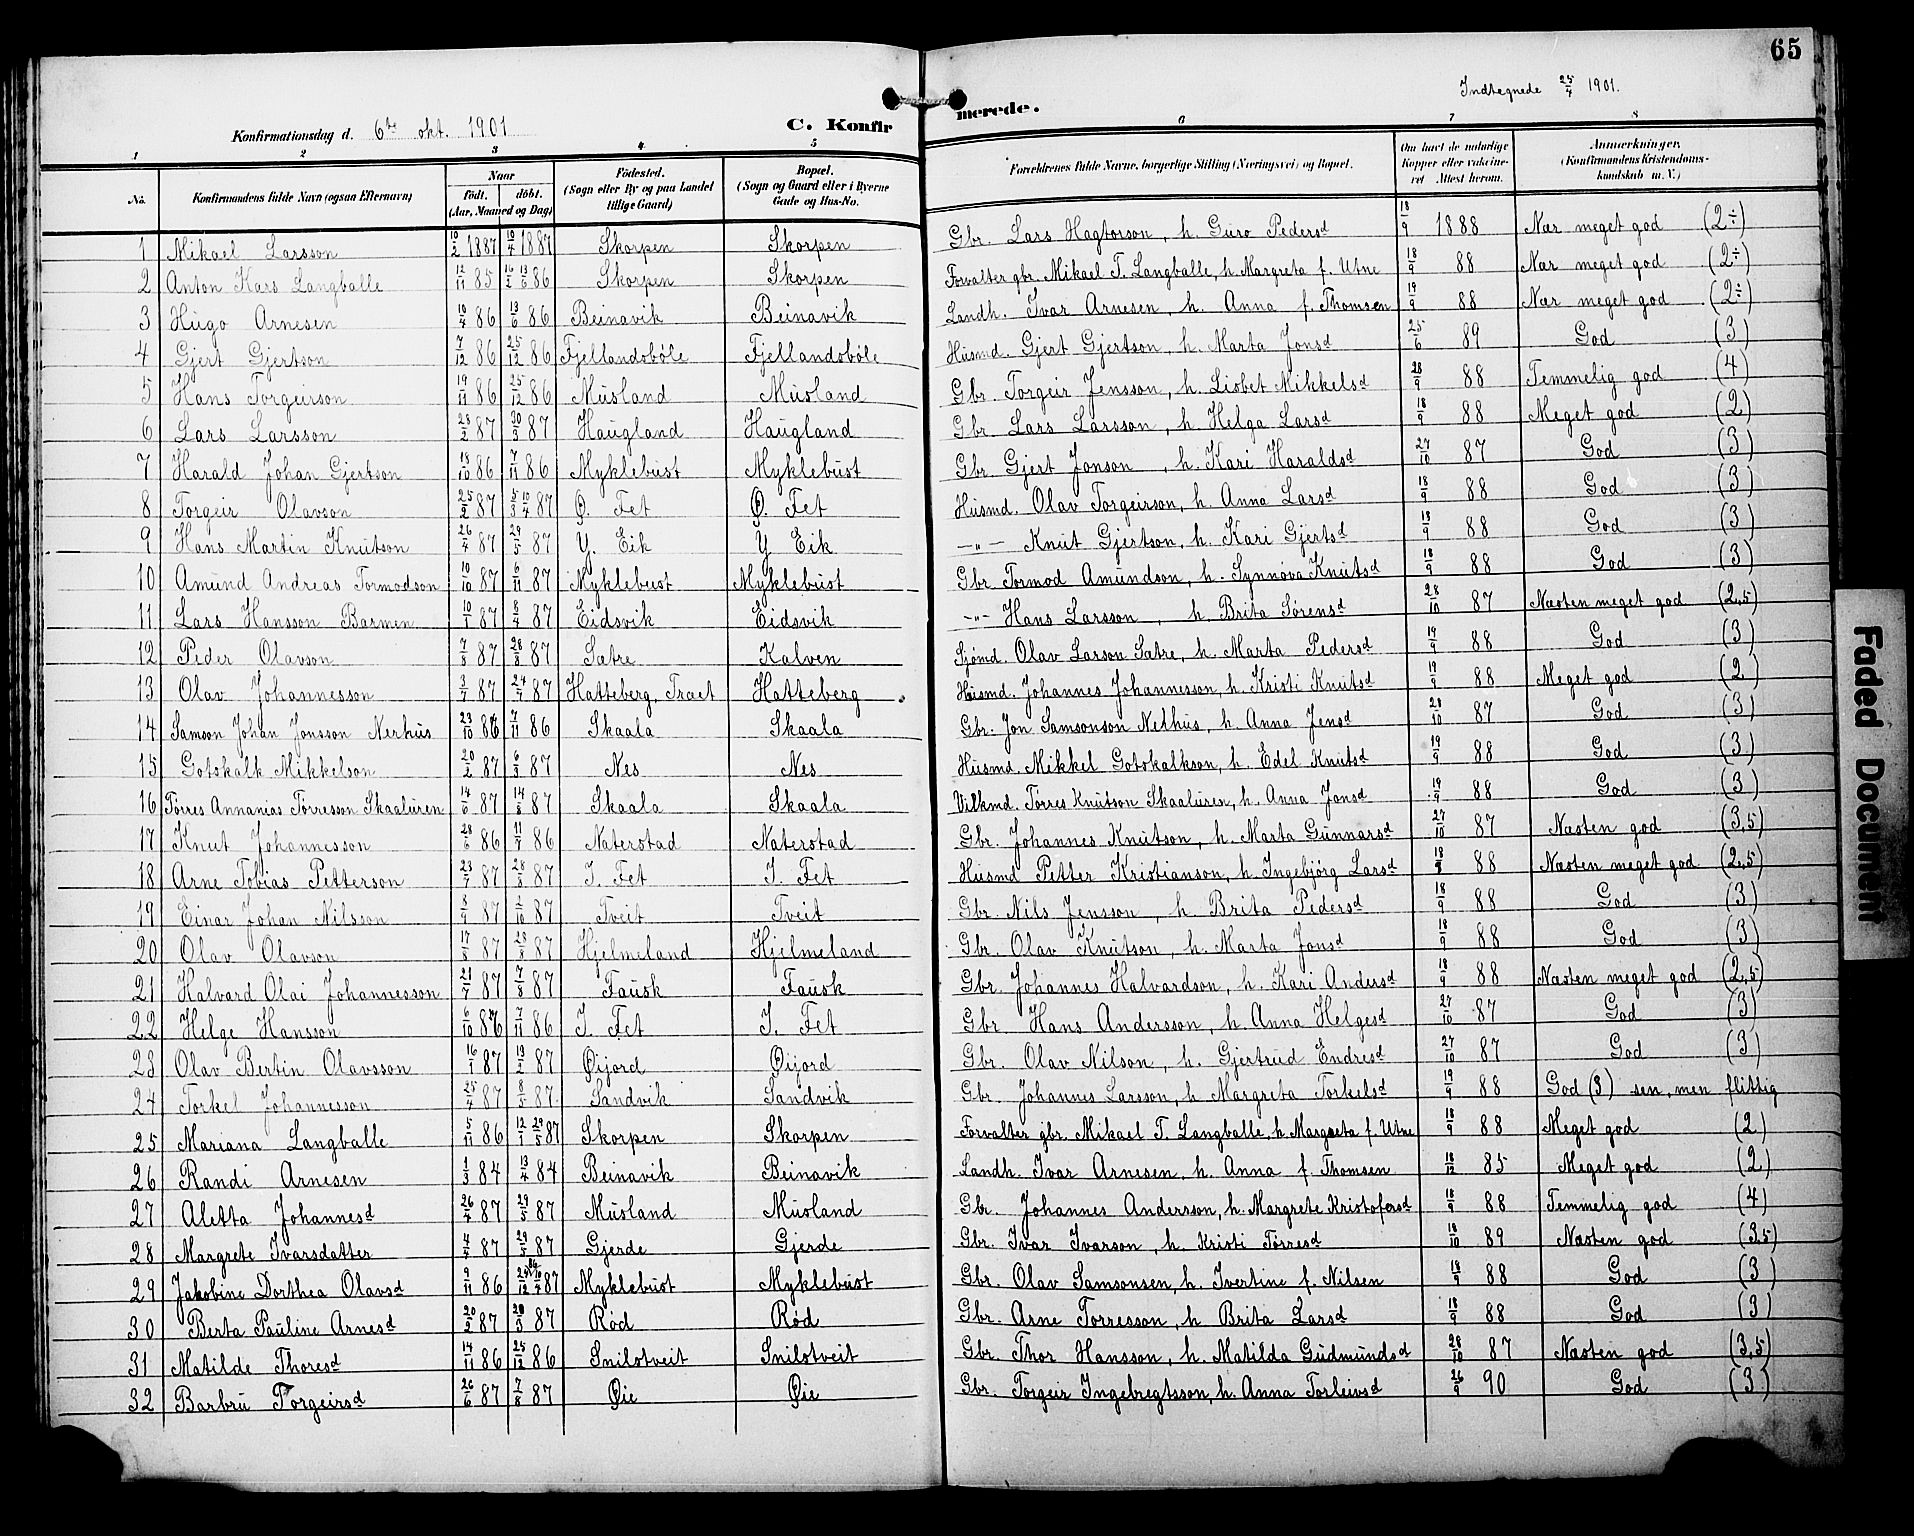 65
Indtegnede 25/4 1901.
Konfirmationsdag d. 6te okt. 1901
C. Konfir merede.
1 2 3 4 5 6 7 8
No. Konfirmandens fulde Navn (ogsaa Efternavn) Naar født. døbt. (Aar, Maaned og Dag) Fødested. (Sogn eller By og paa Landet tillige Gaard) Bopæl. (Sogn og Gaard eller i Byerne Gade og Hus-No. Forældrenes fulde Navne, borgerlige Stilling (Næringsvei) og Bopæl. Om havt de naturlige Kopper eller vaccineret Attest herom. Anmerkninger. (Konfirmandens Kristendomskundskab m. V.)
1 Mikael Larsson 10/2 1887 10/4 1887 Skorpen Skorpen Gbr. Lars Hagtorson, h. Guro Pedersd 18/9 1888 Nær meget god (2÷)
2 Anton Kars Langballe 12/11 85 16/2 13/6 86 Skorpen Skorpen Forvalter gbr. Mikael T. Langballe, h. Margreta f. Utne 18/9 88 Nær meget god (2÷)
3 Hugo Arnesen 10/4 86 13/6 86 Beinavik Beinavik Landh. Ivar Arnesen, h. Anna f. Thomsen 19/9 88 Nær meget god (2÷)
4 Gjert Gjertson 7/12 86 25/12 86 Fjellandsbøle Fjellandsbøle Husmd. Gjert Gjertson, h. Marta Jonsd 25/6 89 God (3)
5 Hans Torgeirson 19/11 86 25/12 86 Musland Musland Gbr. Torgeir Jensson, h. Lisbet Mikkelsd 28/9 88 Temmelig god (4)
6 Lars Larsson 28/2 87 30/3 87 Haugland Haugland Gbr. Lars Larsson, h. Helga Larsd 18/9 88 Meget god (2)
7 Harald Johan Gjertson 18/10 86 7/11 86 Myklebust Myklebust Gbr. Gjert Jonson, h. Kari Haraldsd 27/10 87 God (3)
8 Torgeir Olavson 25/2 87 5/3 10/4 87 Ø. Fet Ø. Fet Husmd. Olav Torgeirson, h. Anna Larsd 18/9 88 God (3)
9 Hans Martin Knutson 26/4 87 29/5 87 Y. Eik Y Eik —"— Knut Gjertson, h. Kari Gjertsd 18/9 88 God (3)
10 Amund Andreas Tormodson 10/10 87 6/11 87 Myklebust Myklebust Gbr. Tormod Amundson, h. Synnøva Knutsd 18/9 88 God (3)
11 Lars Hansson Barmen 10/1 87 8/4 87 Eidsvik Eidsvik —"— Hans Larsson, h. Brita Sørensd 28/10 87 Næsten meget god (2,5)
12 Peder Olavson 7/8 87 28/8 87 Sætre Kalven Sjømd. Olav Larson Sætre, h. Marta Pedersd 19/9 88 God (3)
13 Olav Johannesson 3/7 87 24/7 87 Hatteberg, Traet Hatteberg Husmd. Johannes Johannesson, h. Kristi Knutsd 19/9 88 Meget god (2)
14 Samson Johan Jonsson Nerhus 23/10 86 7/11 86 Skaala Skaala Gbr. Jon Samsonson Nethus, h. Anna Jensd 28/10 87 God (3)
15 Gotskalk Mikkelson 20/2 87 6/3 87 Nes Nes Husmd. Mikkel Gotskalkson, h. Edel Knutsd 19/9 88 God (3)
16 Tørres Annanias Tørresson Skaaluren 14/6 87 14/8 87 Skaala Skaala Vilkmd. Tørres Knutson Skaaluren, h. Anna Jonsd 19/9 88 God (3)
17 Knut Johannesson 28/6 86 11/7 86 Naterstad Naterstad Gbr. Johannes Knutson, h. Marta Gunnarsd 27/10 87 Næsten god (3,5)
18 Arne Tobias Petterson 23/7 87 28/8 87 I. Fet I. Fet Husmd Petter Kristianson, h. Ingebjørg Larsd 18/9 88 Næsten meget god (2,5)
19 Einar Johan Nilsson 8/9 87 2/10 87 Tveit Tveit Gbr. Nils Jensson, h Brita Pedersd 18/9 88 God (3)
20 Olav Olavson 17/8 87 28/8 87 Hjelmeland Hjelmeland Gbr. Olav Knutson, h. Marta Jonsd 18/9 88 God (3)
21 Halvard Olai Johannesson 21/7 87 7/8 87 Fausk Fausk Gbr. Johannes Halvardson, h. Kari Andersd 18/9 88 Næsten meget god (2,5)
22 Helge Hansson 6/10 86 7/11 86 I. Fet I. Fet Gbr. Hans Andersson, h. Anna Helgesd 27/10 87 God (3)
23 Olav Bertin Olavsson 16/1 87 13/2 87 Øijord Øijord Gbr. Olav Nilson, h. Gjertrud Endresd 27/10 87 God (3)
24 Torkel Johannesson 25/4 87 8/5 87. Sandvik Sandvik Gbr. Johannes Larsson, h Margreta Torkelsd 19/9 88 God (3) sen, men flittig
25 Mariana Langballe 5/11 86 12/1 29/5 87 Skorpen Skorpen Forvalter gbr. Mikael T. Langballe, h. Margreta f Utne 18/9 88 Meget god (2)
26 Randi Arnesen 1/3 84 13/4 84 Beinavik Beinavik Landh. Ivar Arnesen, h. Anna f. Thomsen 18/12 85 Meget god (2)
27 Aletta Johannesd 26/4 87 29/5 87 Musland Musland Gbr. Johannes Andersson, h. Margrete Kristofersd 18/9 88 Temmelig god (4)
28 Margrete Ivarsdatter 4/4 87 29/5 87 Gjerde Gjerde Gbr. Ivar Ivarson, h. Kristi Tørresd 18/10 89 Næsten god (3,5)
29 Jakobine Dorthea Olavsd 9/11 86 24/12 86 10/4 87 Myklebust Myklebust Gbr. Olav Samsonsen, h. Ivertine f. Nilsen 18/9 88 God (3)
30 Berta Pauline Arnesd 20/2 87 20/3 87 Rød Rød Gbr. Arne Torresson, h Brita Larsd 18/9 88 God (3)
31 Matilde Thoresd 14/11 86 25/12 86 Snilstveit Snilstveit Gbr. Thor Hansson, h. Matilda Gudmundsd 28/10 87 Næsten god (3,5)
32 Barbru Torgeirsd 26/6 87 7/8 87 Øie Øie Gbr. Torgeir Ingebregtsson, h. Anna Torleivsd 26/9 90 God (3)
Faded Document